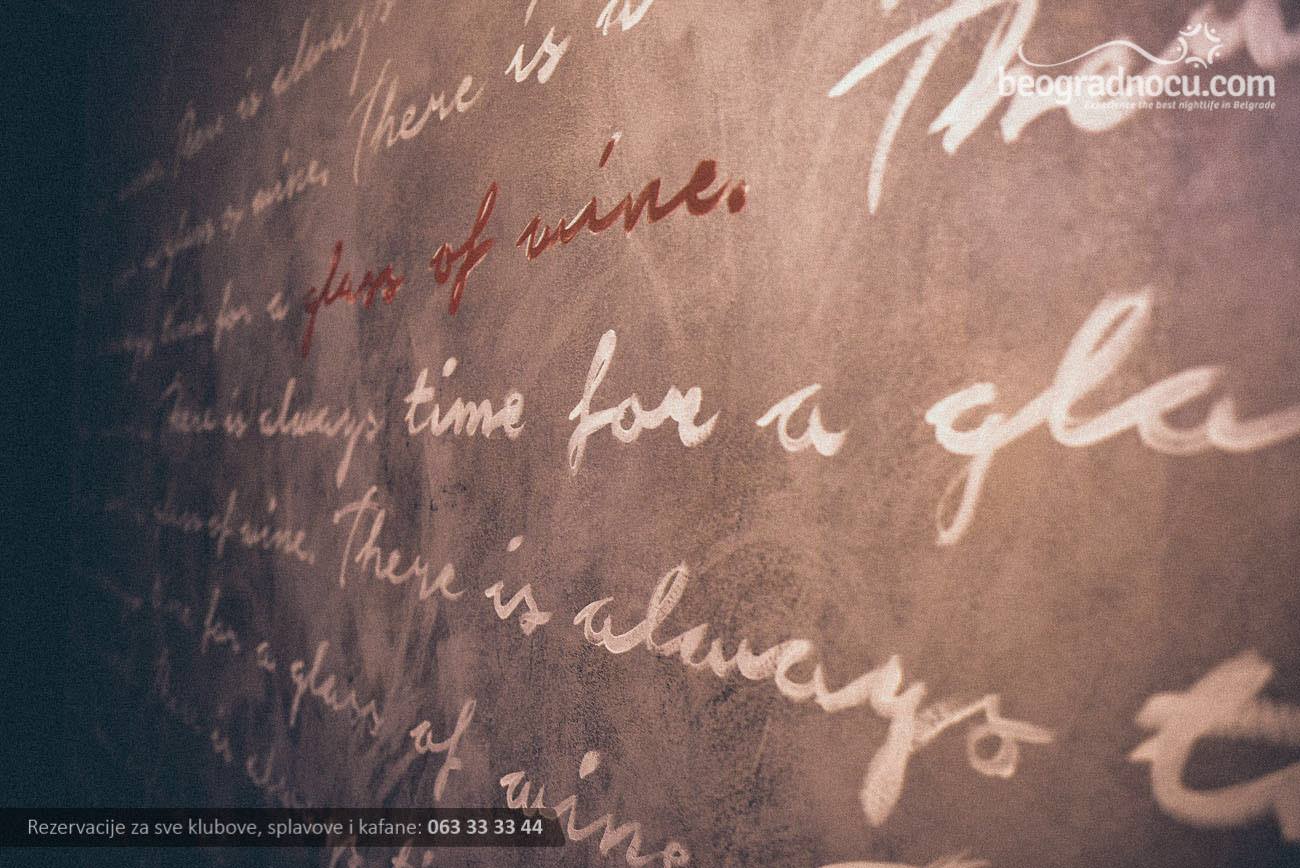 There is always
There is a
The
beogradnocu.com
Experience the best nightlife in Belgrade
glass of wine. There is a
time for a glass of wine.
There is always time for a gla
glass of wine. There is always t
time for a glass of wine
Rezervacije za sve klubove, splavove i kafane: 063 33 33 44